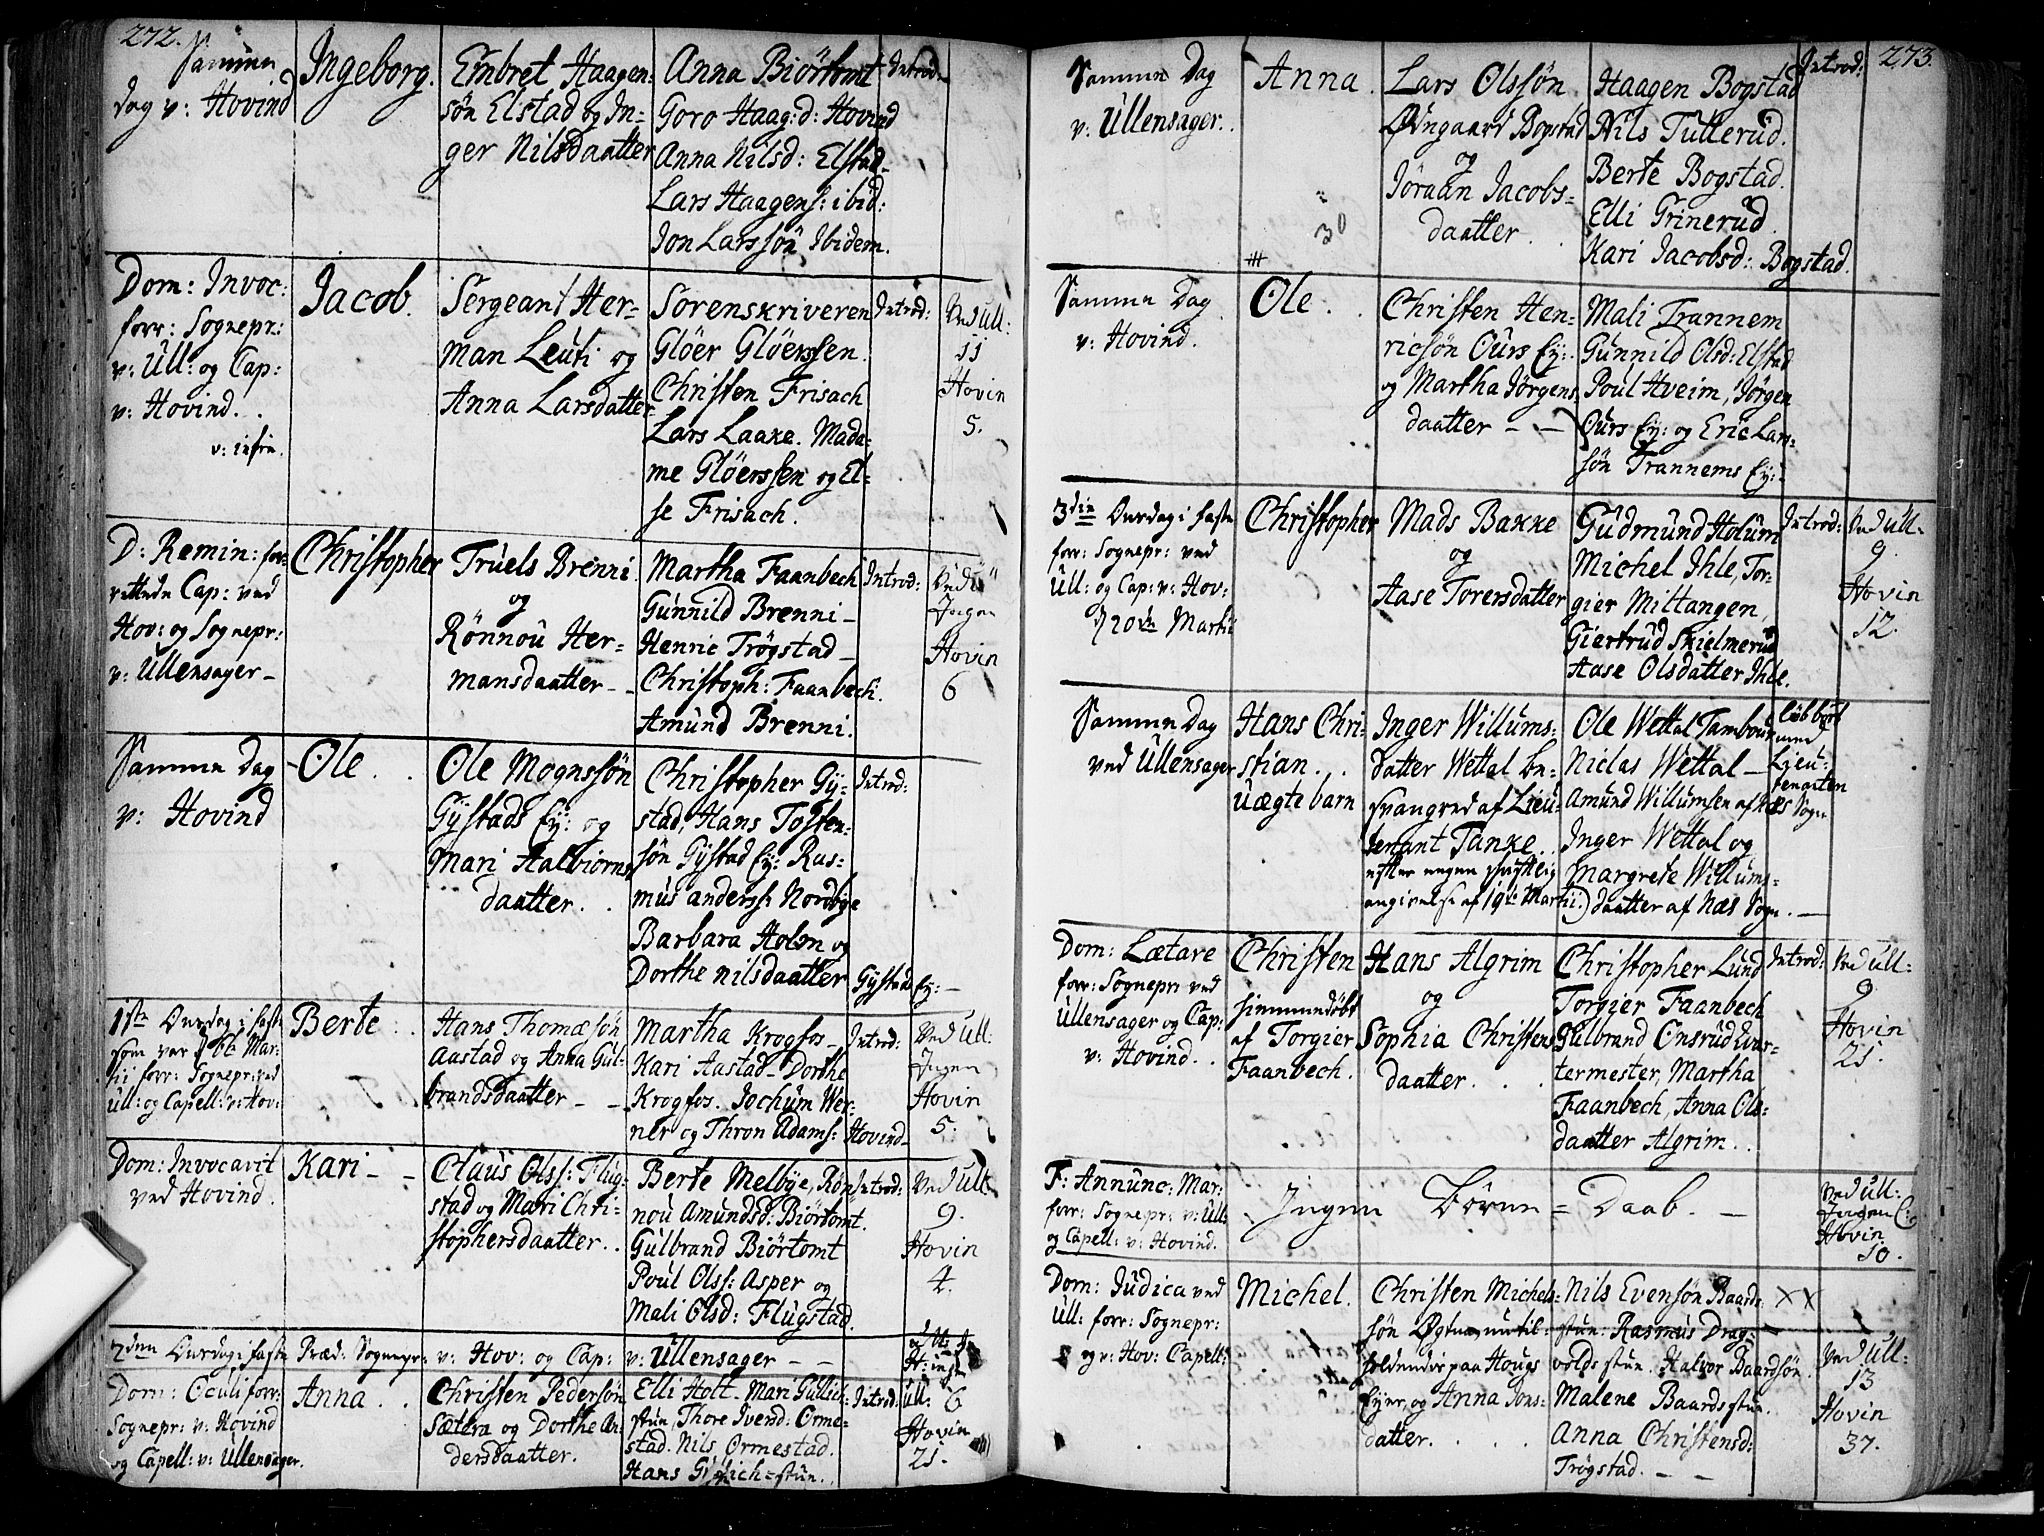 272.
Samme dag v: Hovind
Ingeborg.
Embret Haagen=
søn Elstad og In=
ger Nilsdaatter
Anna Biörtomt
Goro Haag:d: Hovind
Anna Nilsd: Elstad
Lars Haagens: ibid:
Jon Larssön Ibidem.
Introd:
Dom: Invoc:
forr: Sognepr:
v: Ull: og Cap:
v: Hovind.
v: infra.
Jacob.
Sergeant Her=
man Leuti og
Anna Larsdatter
Sorenskriveren
Glöer Glöerssen.
Christen Frisach
Lars Laake. Mada=
me Glöerssen og El=
se Frisach.
Introd:
Ved Ull:
11
Hovin
5.
D: Remin: for=
rettede Cap: ved
Hov: og Sognepr:
v: Ullensager
Christopher
Truels Brenni
og
Rönnou Her=
mansdaatter
Martha Faanbech
Gunnild Brenni
Henric Trögstad
Christoph: Faanbech.
Amund Brenni.
Introd:
Ved Ull
Ingen
Hovin
6
Samme Dag
v: Hovind
Ole
Ole Mognssön
Gystads Ey: og
Mari Aalbiorns
daatter.
Christopher Gy=
stad, Hans Tosten=
søn Gystad Ey: Ras=
mus anderss: Nordbye
Barbara Holm og
Dorthe nilsdaatter Gystads Ey:
Introd:
1ste Onsdag i faste
som var d 6te Mar=
tii forr: Sognepr: ved
Ull: og Capell: v: Hov:
Berte
Hans Thomæsön
Aastad og Anna Gul=
brandsdaatter
Martha Krogfos
Kari Aastad Dorthe
Krogfos. Jochum Wer=
ner og Thron Adams: Hovind
Introd:
Ved Ull:
Ingen
Hovin
5.
Dom: Invocavit
ved Hovind.
Kari
Claus Olss: Flug=
stad og Mari Chri=
stophersdaatter.
Berte Melbye, Rön=
nou Amundsd: Biörtomt.
Gulbrand Biörtomt
Poul Olss: Asper og
Mali Olsd: Flugstad.
Introd:
Ved Ull:
9.
Hovin
4.
2den Onsdag i faste Præd: Sognepr: v: Hov: og Cap: v: Ullensager
Dom: Oculi forr:
Sognepr: v: Hovind
og Capell: v: Ullensager.
Anna
Christen Pedersön
Sætera og Dorthe An=
dersdaatter.
Elli Holt. Mari Gullich=
stun, Thore Iversd: Orme=
stad. Nils Ormestad.
Hans Gullich=stun.
Introd:
Ull: 6
Hovin
21.
273.
Samme Dag
v: Ullensager.
Anna
30
Lars Olssön
Ødegaard Bogstad
og
Jöraan Jacobs=
daatter
Haagen Bogstad
Nils Tutterud.
Berte Bogstad.
Elli Grinerud.
Kari Jacobsd: Bogstad.
Introd:
Samme Dag
v: Hovind.
Ole
Christen Hen=
ricsön Ours Ey:
og Martha Jörgens
daatter
Mali Trannem
Gunnild Olsd: Elstad
Poul Hveim, Jörgen
Ours Ey: og Eric Lars=
søn Trannems Ey:
3die Onsdag i faste
forr: Sognepr: ved
Ull: og Cap: v: Hov:
d 20de Martii
Christopher
Mads Bakke
og
Aase Torersdatter
Gudmund Holum
Michel Ihle, Tor=
gier Miltangen,
Giertrud Skielmerud
Aase Olsdatter Ihle.
Introd:
Ved Ull:
9.
Hovin
12.
Samme Dag
ved Ullensager
Hans Chri=
stian.
Uægte barn
Inger Willums=
datter Wettal be=
svangred af Lieu=
tenant Tanke.
efter egen skriftlig
angivelse af 19de Martii.
Ole Wettal Tambour
Niclas Wettal
Amund Willumsen af Næs Sogn
Inger Wettal og
Margrete Willums=
daatter af Næs Sogn.
med
Lieu=
tenanten
Dom: Lætare
forr: Sognepr: ved
Ullensager og Cap:
v: Hovind.
Christen
hiemmedöbt
af Torgier
Faanbech.
Hans Algrim
og
Sophia Christens
daatter.
Christopher Lund
Torgier Faanbech
Gulbrand Onsrud Qvar=
termester, Martha
Faanbech, Anna Ols=
daatter Algrim.
Introd:
Ved Ull:
9
Hovin
21.
F: Annunc: Mar:
forr: Sognepr: v: Ull:
og Capell: v: Hovind.
Ingen Börne=Daab.
Ved Ull:
Ingen C:
Hovin
10.
Dom: Judica ved
Ull: forr: Sognepr:
og v: Hov: Capell:
Michel.
Christen Michels=
søn
paa Hougs
Eyer, og Anna Jons=
datter.
Nils Evensön Baards
stun. Rasmus Drag=
volds stun. Halvor Baardsön.
Malene Baards stun.
Anna Christensd:
Trögstad.
XX
Ved Ull:
13
Hovin
37.